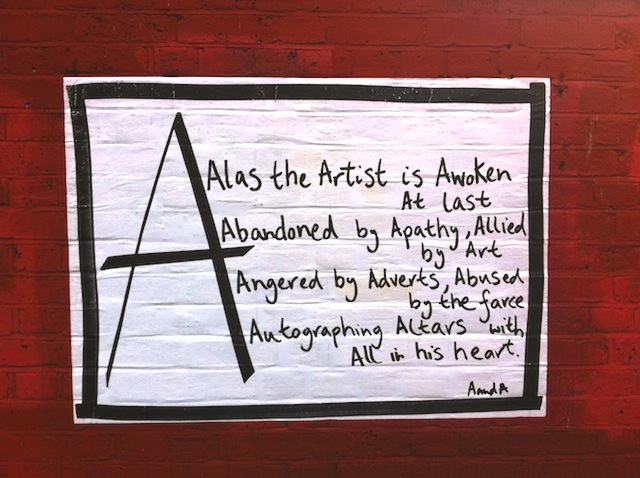 A
Alas the Artist is Awoken
At last
Abandoned by Apathy, Allied
by Art
Angered by Adverts, Abused
by the farce
Autographing Altars with
All in his heart.